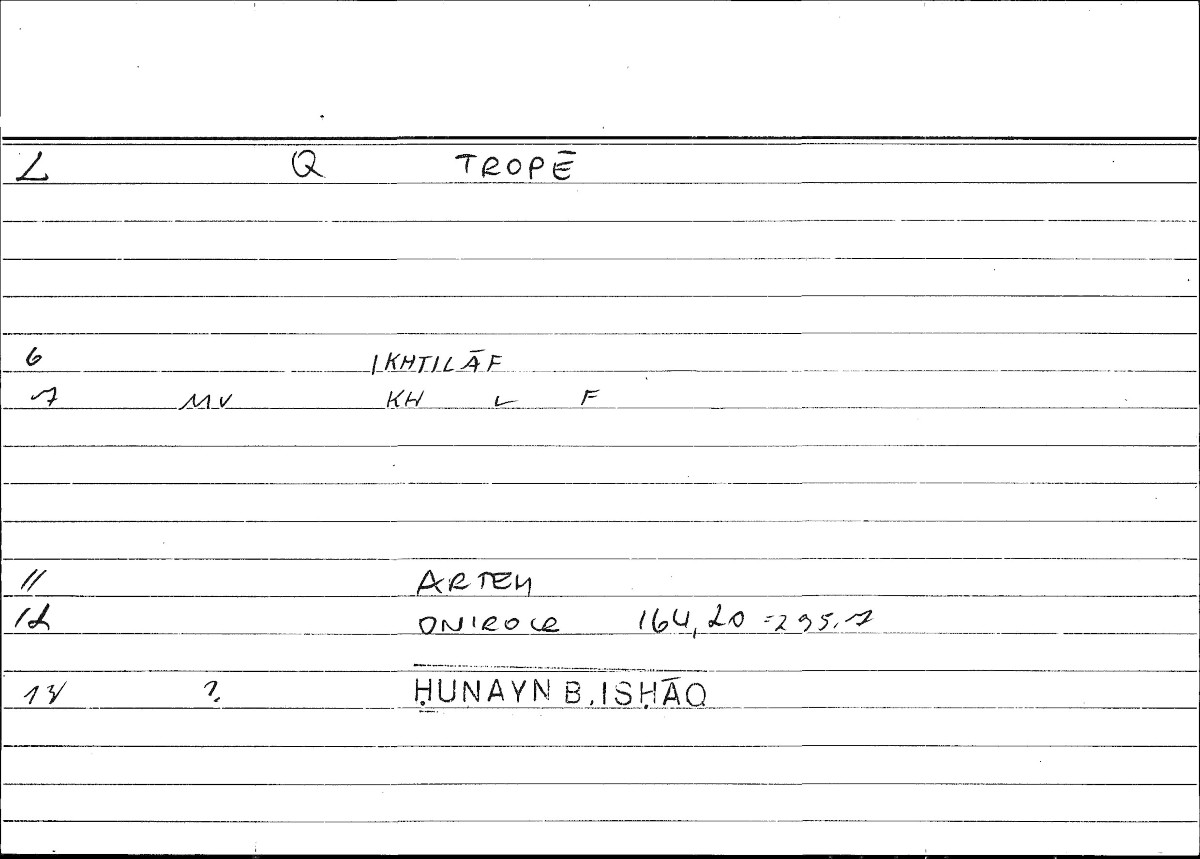 L Q TROPĒ
6 IKHTILĀF
7 MV KH L F
11 ARTEM
12 ONIROCR 164,20 = 295.7
13 ? ḤUNAYN B. ISḤĀQ